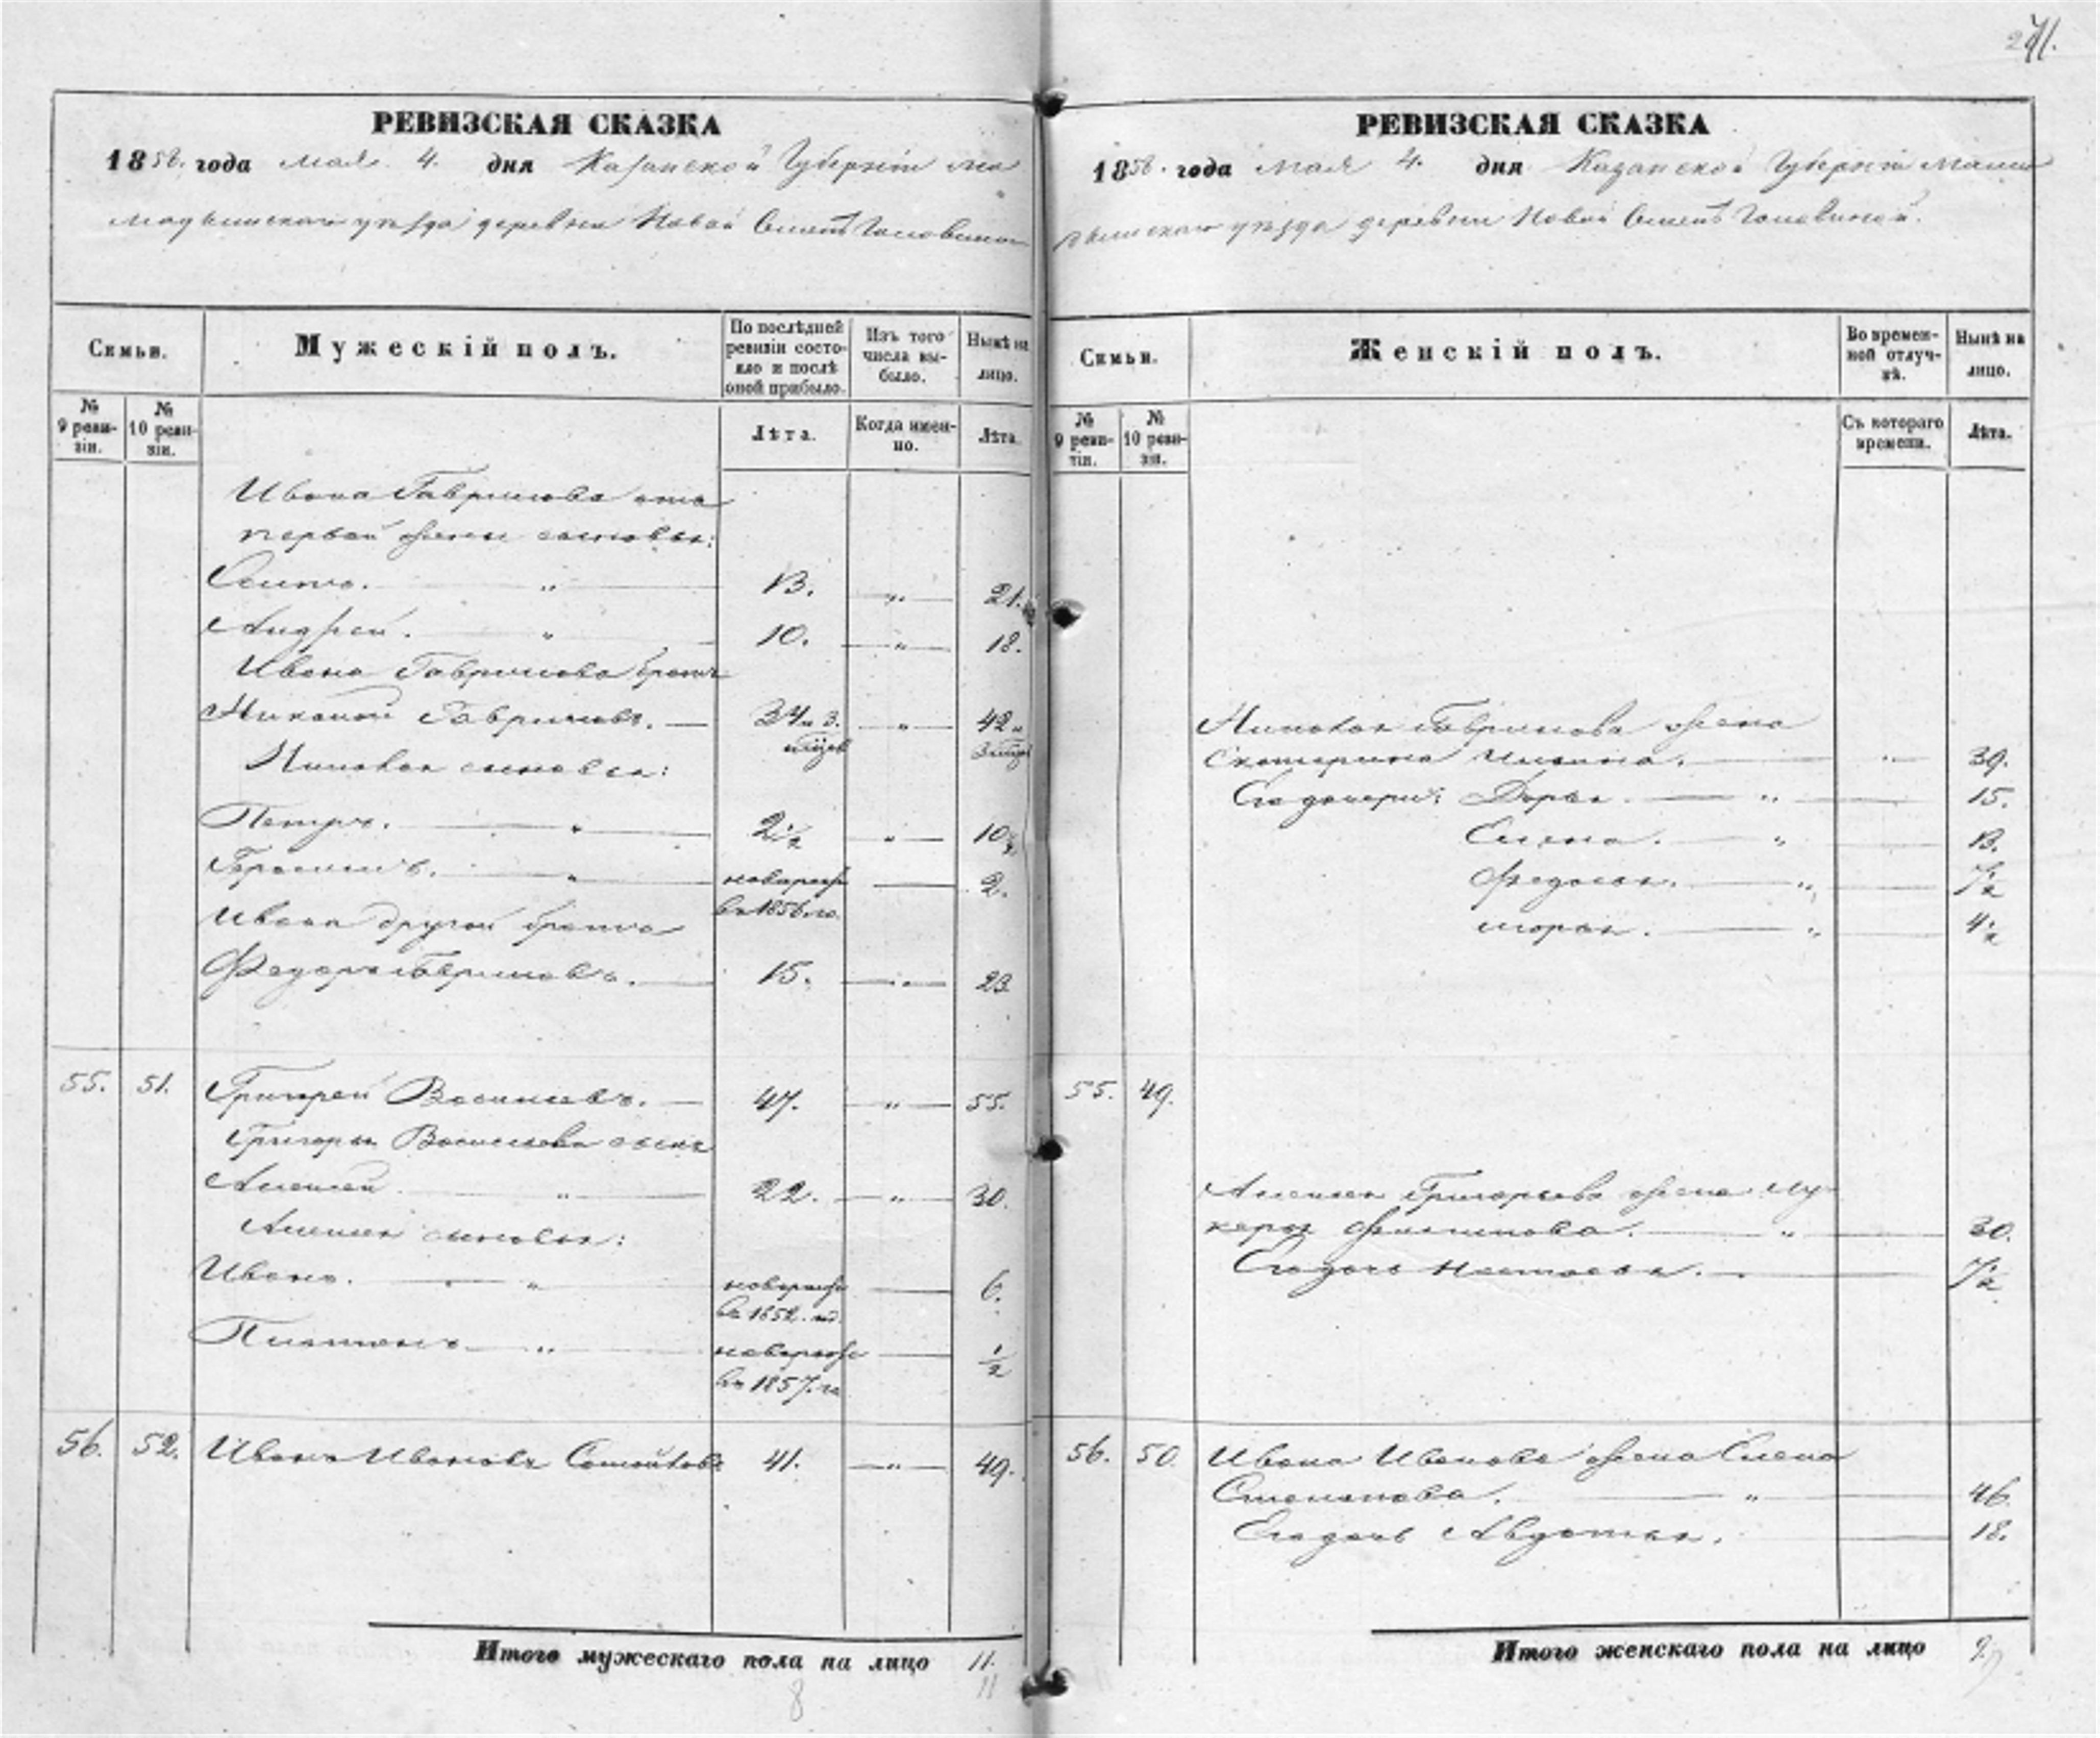 271.
РЕВИЗСКАЯ СКАЗКА
1858. года мая 4. дня Казанской Губерніи Ма
мадышскаго уѣзда деревни Новой
Семьи.
Мужескій полъ.
По послѣдней ревизіи состояло и послѣ оной прибыло.
Изъ того числа выбыло.
Нынѣ на лицо.
№ 9 ревизіи.
№ 10 ревизіи.
Лѣта.
Когда именно.
Лѣта.
Ивана Гаврилова отъ
первой жены сыновья:
Осипъ. " 13. " 21.
Андрей. " 10. " 18.
Ивана Гаврилова братъ
Гавриловъ. 34 и 3. " 42 и
сыновья:
Петръ. " 2½ " 10½
Герасимъ. " новорож 2.
въ 1856 го.
Ивана другой братъ
Федоръ Гавриловъ. 15. " 23
55. 51. Григорей Васильевъ. 47. " 55.
Григорья Васильева сынъ
Алексей " 22. " 30.
Алексея сыновья:
Иванъ. " новорож 6.
въ 1852. год.
Платонъ " новорож ½
въ 1857. го
56. 52. Иванъ Ивановъ 41. " 49.
Итого мужескаго пола на лицо 11.
11
8
РЕВИЗСКАЯ СКАЗКА
1858. года мая 4. дня Казанской Губерніи Мама
дышскаго уѣзда деревни Новой
Семьи.
Женскій полъ.
Во временной отлучкѣ.
Нынѣ на лицо.
№ 9 ревизіи.
№ 10 ревизіи.
Съ котораго времени.
Лѣта.
Гаврилова жена
Екатерина " 39.
Его дочери: Дарья. " 15.
Елена. " 13.
Федосья. " 7½
Марья. " 4½
55. 49.
Алексея Григорьева жена Лу-
керья Филипова. " 30.
Его дочь Настасья. 7½
56. 50. Ивана Иванова жена Елена
Степанова. " 46.
Его дочь Авдотья. 18.
Итого женскаго пола на лицо 9